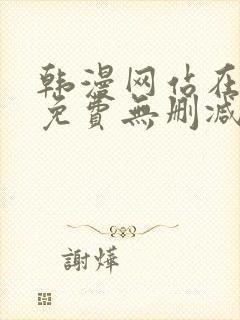 韩漫网站在
免費無删减
謝燁